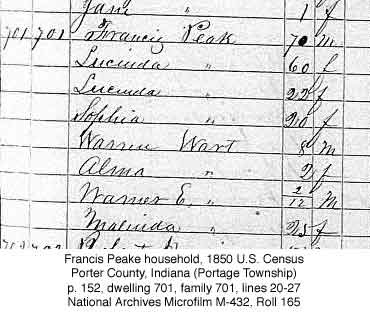 Jane " 1 f
701 701 Francis Peak 70 M
Lucinda " 60 f
Lucinda " 22 f
Sophia " 20 f
Warren Wart 8 M
Alma " 2 f
Warner E. " 2/12 M
Malinda " 25 f
702 702
Francis Peake household, 1850 U.S. Census
Porter County, Indiana (Portage Township)
p. 152, dwelling 701, family 701, lines 20-27
National Archives Microfilm M-432, Roll 165